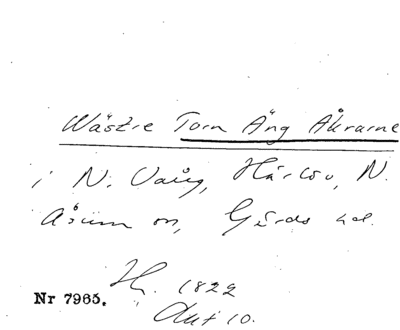 Wästre Torn Äng Åkrarne
i N. Vång, Härlöv, N.
Åsum sn, Gärds hd.
Hr. 1822
Akt 10.
Nr 7965.